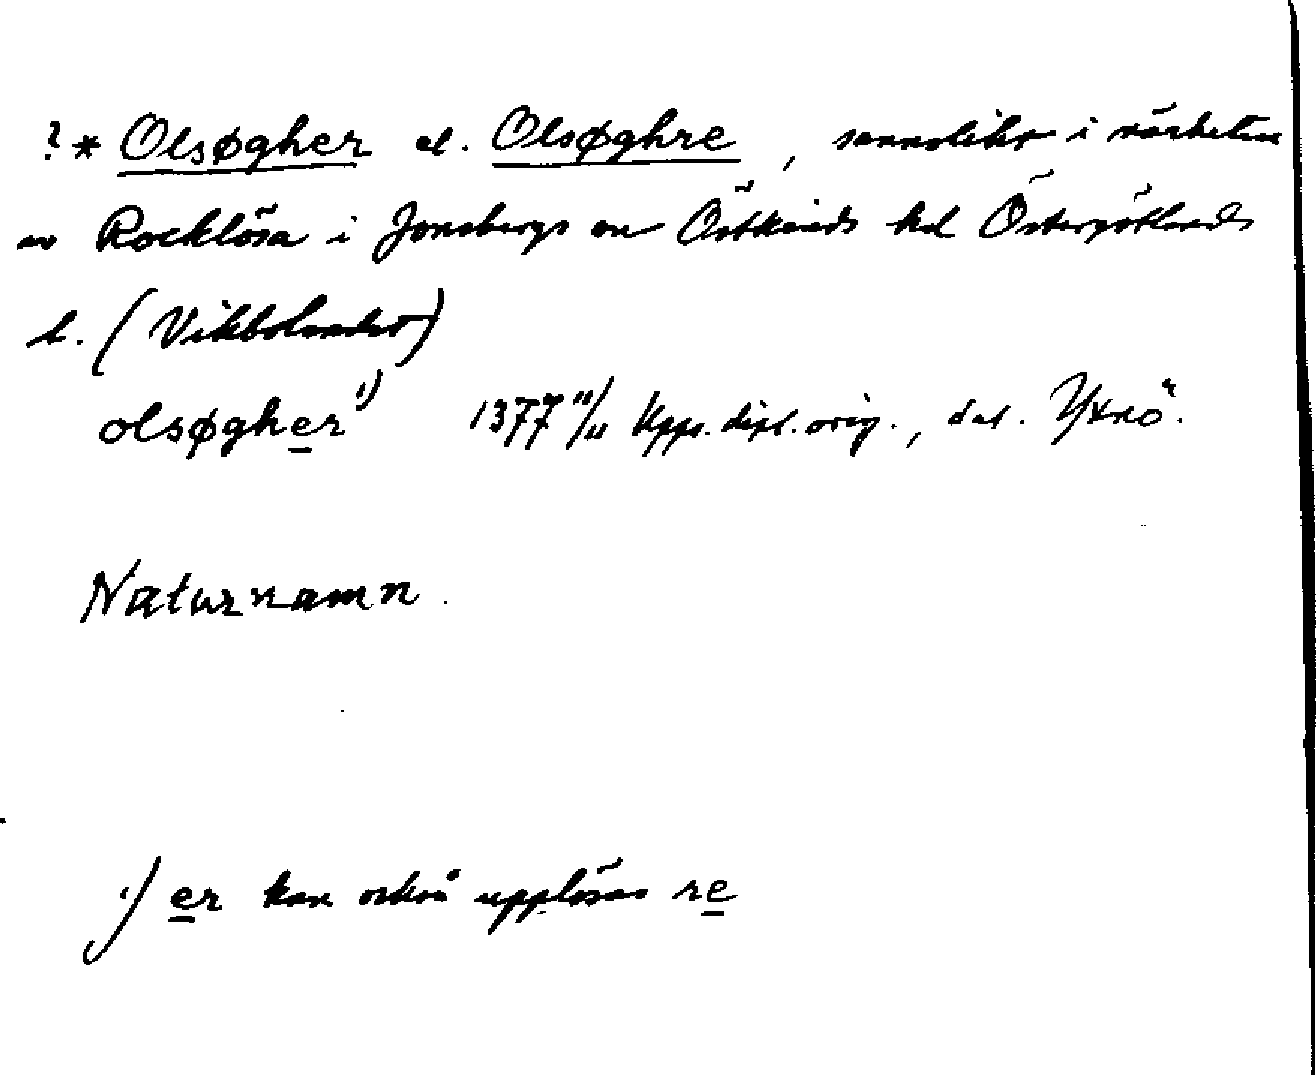 ?* Olsøgher el. Olsøghre, sannolikt i närheten
av Rocklösa i Jonsbergs sn Östkinds hd Östergötlands
l. (Vikbolandet)
olsøgher 1) 1377 11/11 Upps. dipl. orig., dat. Yxnö.
Naturnamn.
1) er kan också upplösas re